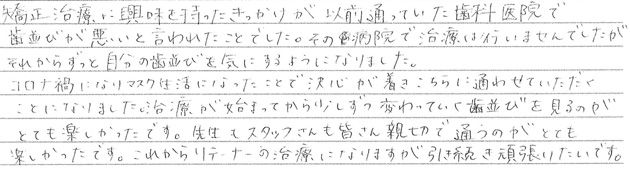 矯正治療に興味を持ったきっかけが以前通っていた歯科医院で
歯並びが悪いと言われたことでした。その病院で治療は行いませんでしたが
それからずっと自分の歯並びを気にするようになりました。
コロナ禍になりマスク生活になったことで決心が着きこちらに通わせていただく
ことになりました。治療が始まってから少しずつ変わっていく歯並びを見るのが
とても楽しかったです。先生もスタッフさんも皆さん親切で通うのがとても
楽しかったです。これからリテーナーの治療になりますが引き続き頑張りたいです。